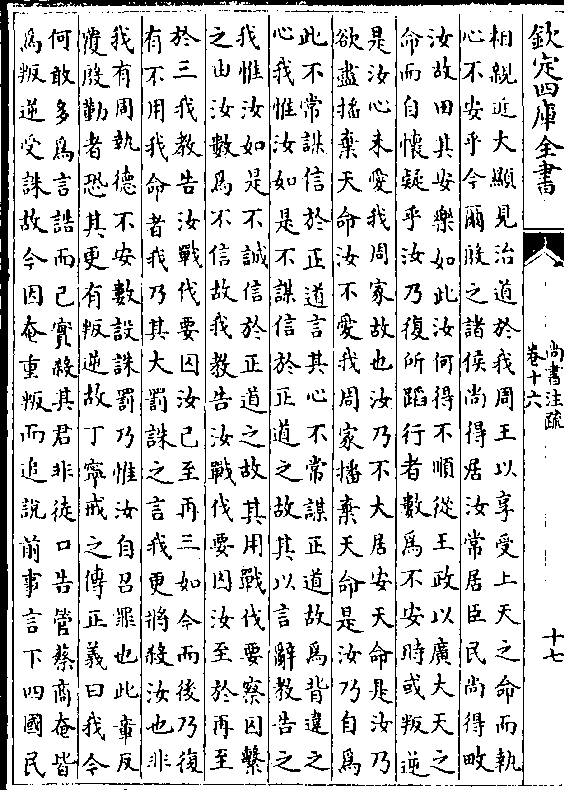 欽定四庫全書
尚書注疏
卷十六
十七
相親近大顯見治道於我周王以享受上天之命而執
心不安乎今爾殷之諸侯尚得居汝常居臣民尚得畋
汝故田其安樂如此汝何得不順從王政以廣大天之
命而自懷疑乎汝乃復所蹈行者數為不安時或叛逆
是汝心未愛我周家故也汝乃不大居安天命是汝乃
欲盡播棄天命汝不愛我周家播棄天命是汝乃自為
此不常謀信於正道言其心不常謀正道故為背違之
心我惟汝如是不謀信於正道之故其以言辭教告之
我惟汝如是不誠信於正道之故其用戰伐要察囚繫
之由汝數為不信故我教告汝戰伐要囚汝至於再至
於三我教告汝戰伐要囚汝已至再三如今而後乃復
有不用我命者我乃其大罰誅之言我更將殺汝也非
我有周執德不安數設誅罰乃惟汝自召罪也此章反
覆殷勤者恐其更有叛逆故丁寧戒之傳正義曰我今
何敢多為言誥而已實殺其君非徒口告管蔡商奄皆
為叛逆受誅故今因奄重叛而追說前事言下四國民